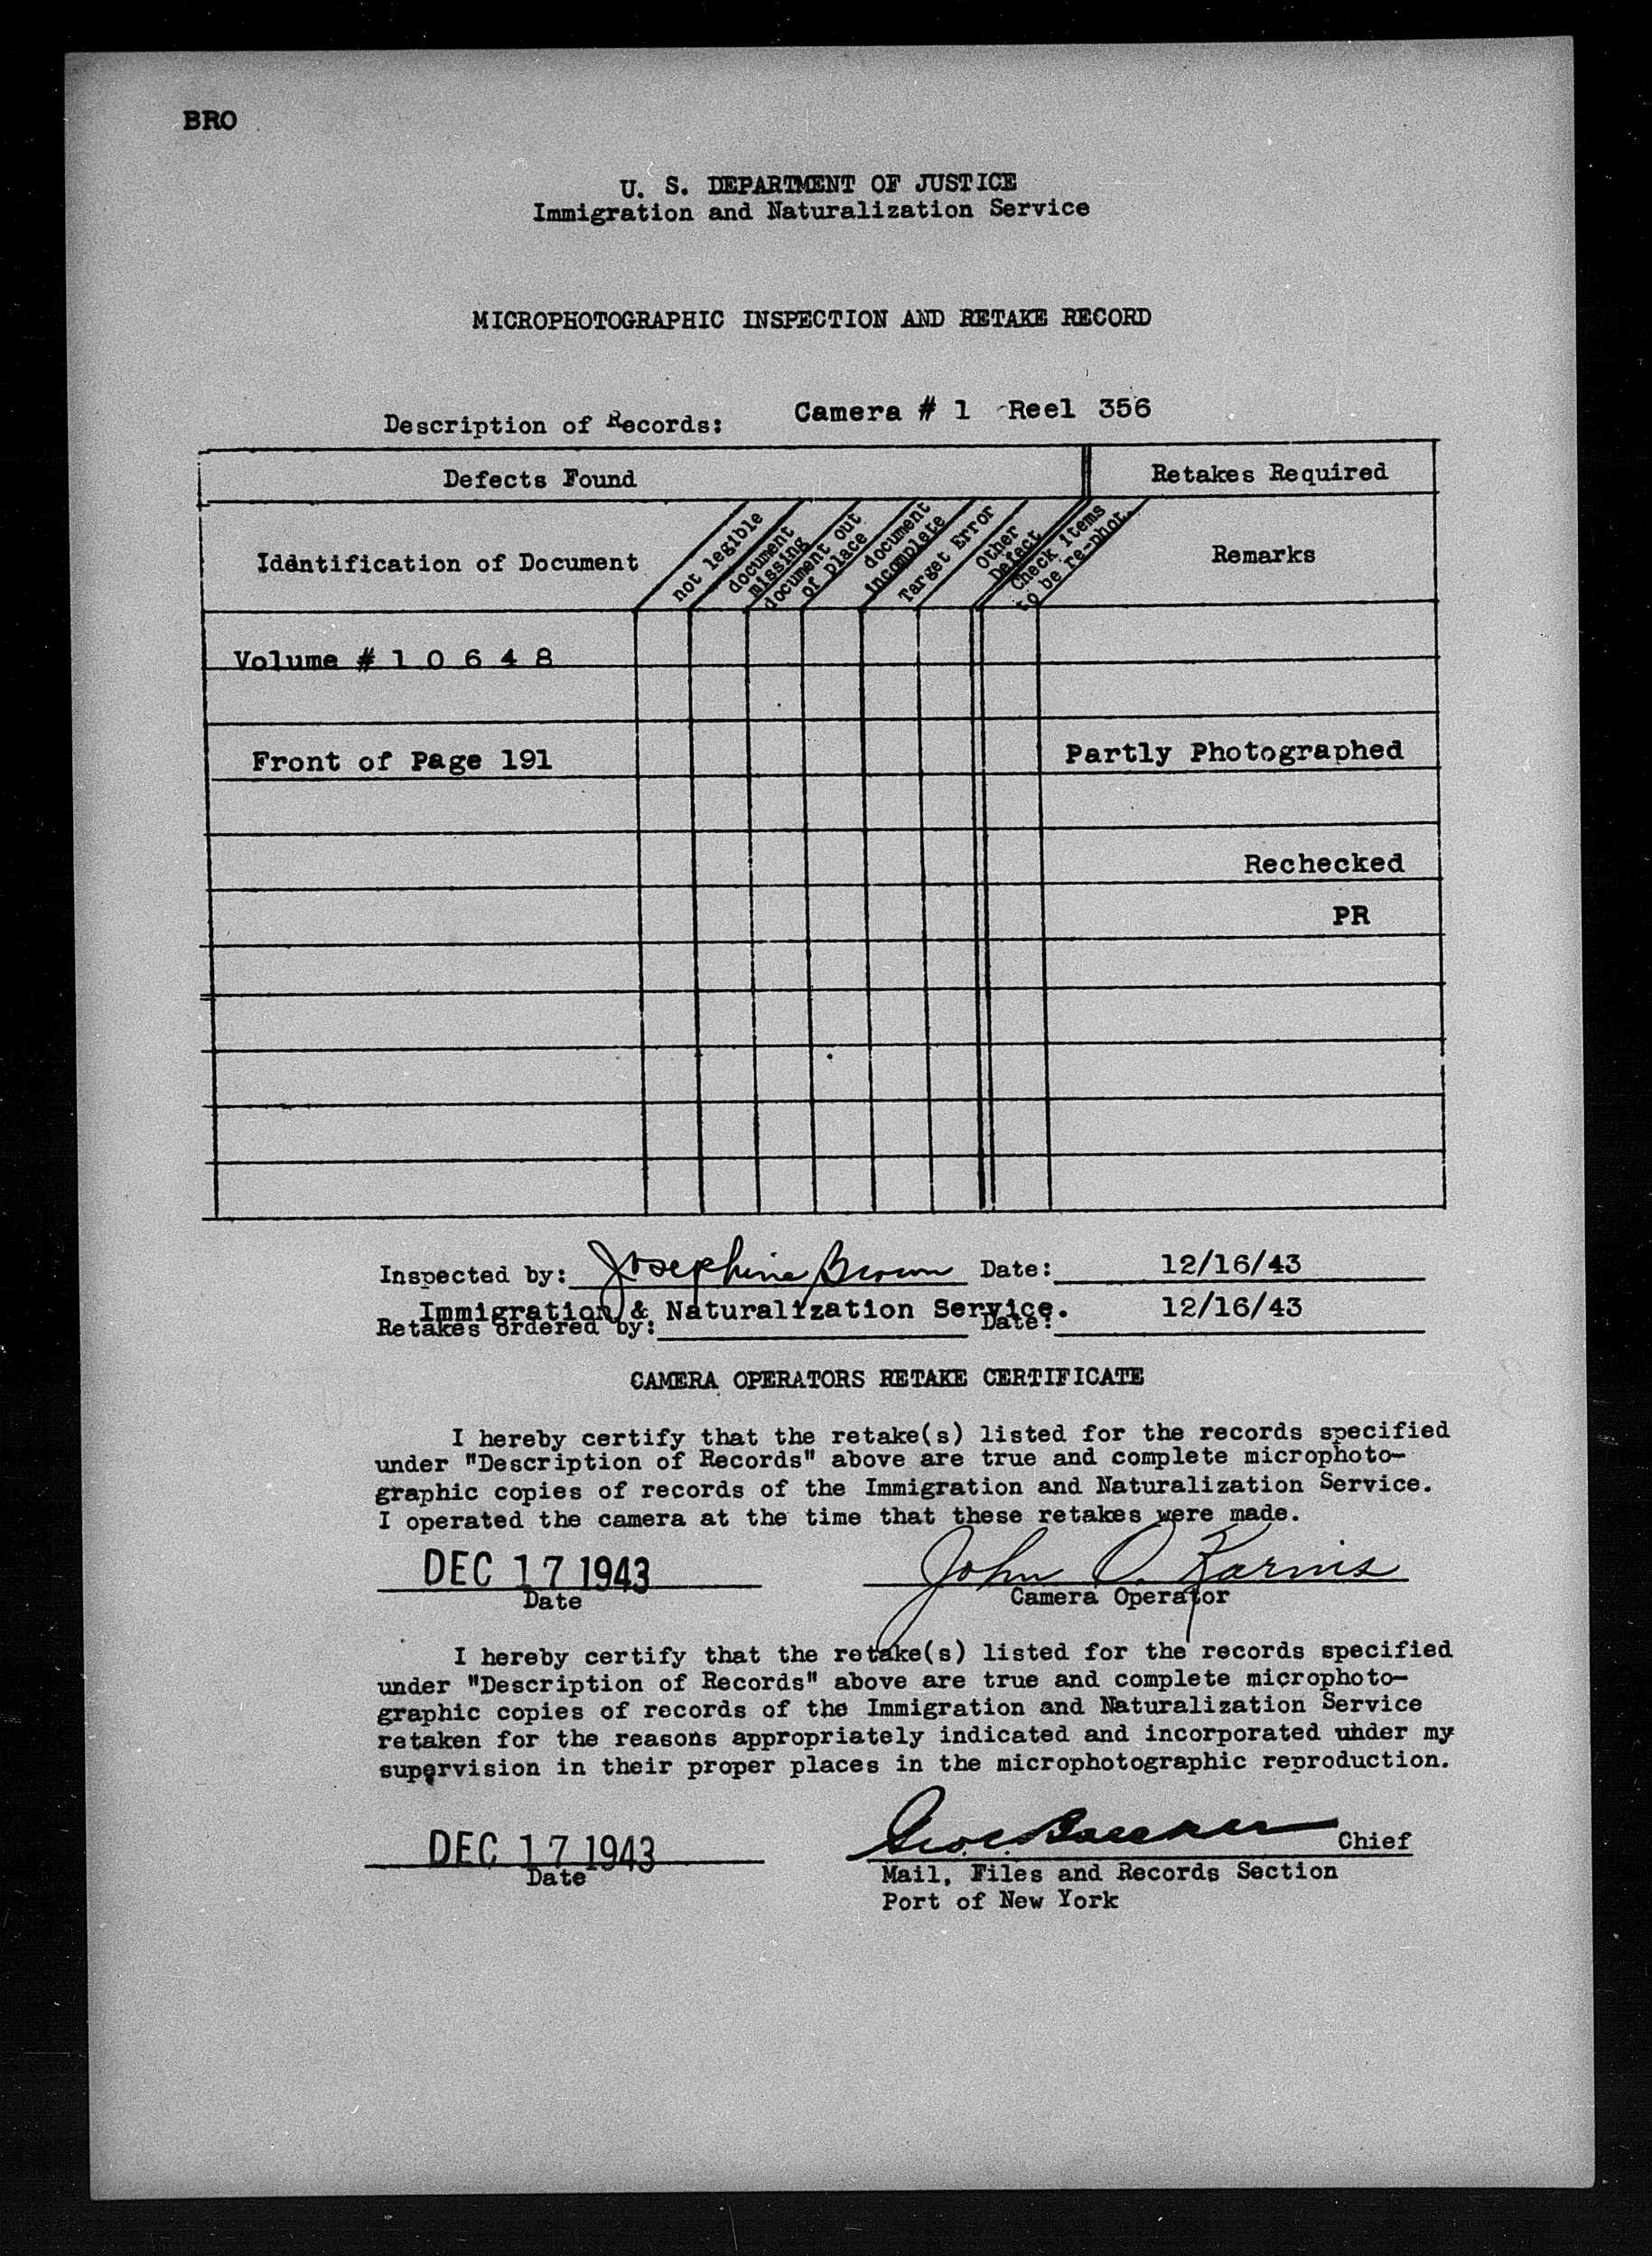 BRO
U. S. DEPARTMENT OF JUSTICE
Immigration and Naturalization Service
MICROPHOTOGRAPHIC INSPECTION AND RETAKE RECORD
Description of Records: Camera # 1 Reel 356
Defects Found Retakes Required
Identification of Document
not legible
document
missing
document out
of place
document
incomplete
Target Error
Other
Defect
Check items
to be re-phot.
Remarks
Volume # 1 0 6 4 8
Front of Page 191 Partly Photographed
Rechecked
PR
Inspected by: Josephine Brown Date: 12/16/43
Immigration & Naturalization Service. 12/16/43
Retakes ordered by: Date:
CAMERA OPERATORS RETAKE CERTIFICATE
I hereby certify that the retake(s) listed for the records specified
under "Description of Records" above are true and complete microphoto-
graphic copies of records of the Immigration and Naturalization Service.
I operated the camera at the time that these retakes were made.
DEC 17 1943 John O. Karnis
Date Camera Operator
I hereby certify that the retake(s) listed for the records specified
under "Description of Records" above are true and complete microphoto-
graphic copies of records of the Immigration and Naturalization Service
retaken for the reasons appropriately indicated and incorporated under my
supervision in their proper places in the microphotographic reproduction.
DEC 17 1943 Chief
Date Mail, Files and Records Section
Port of New York